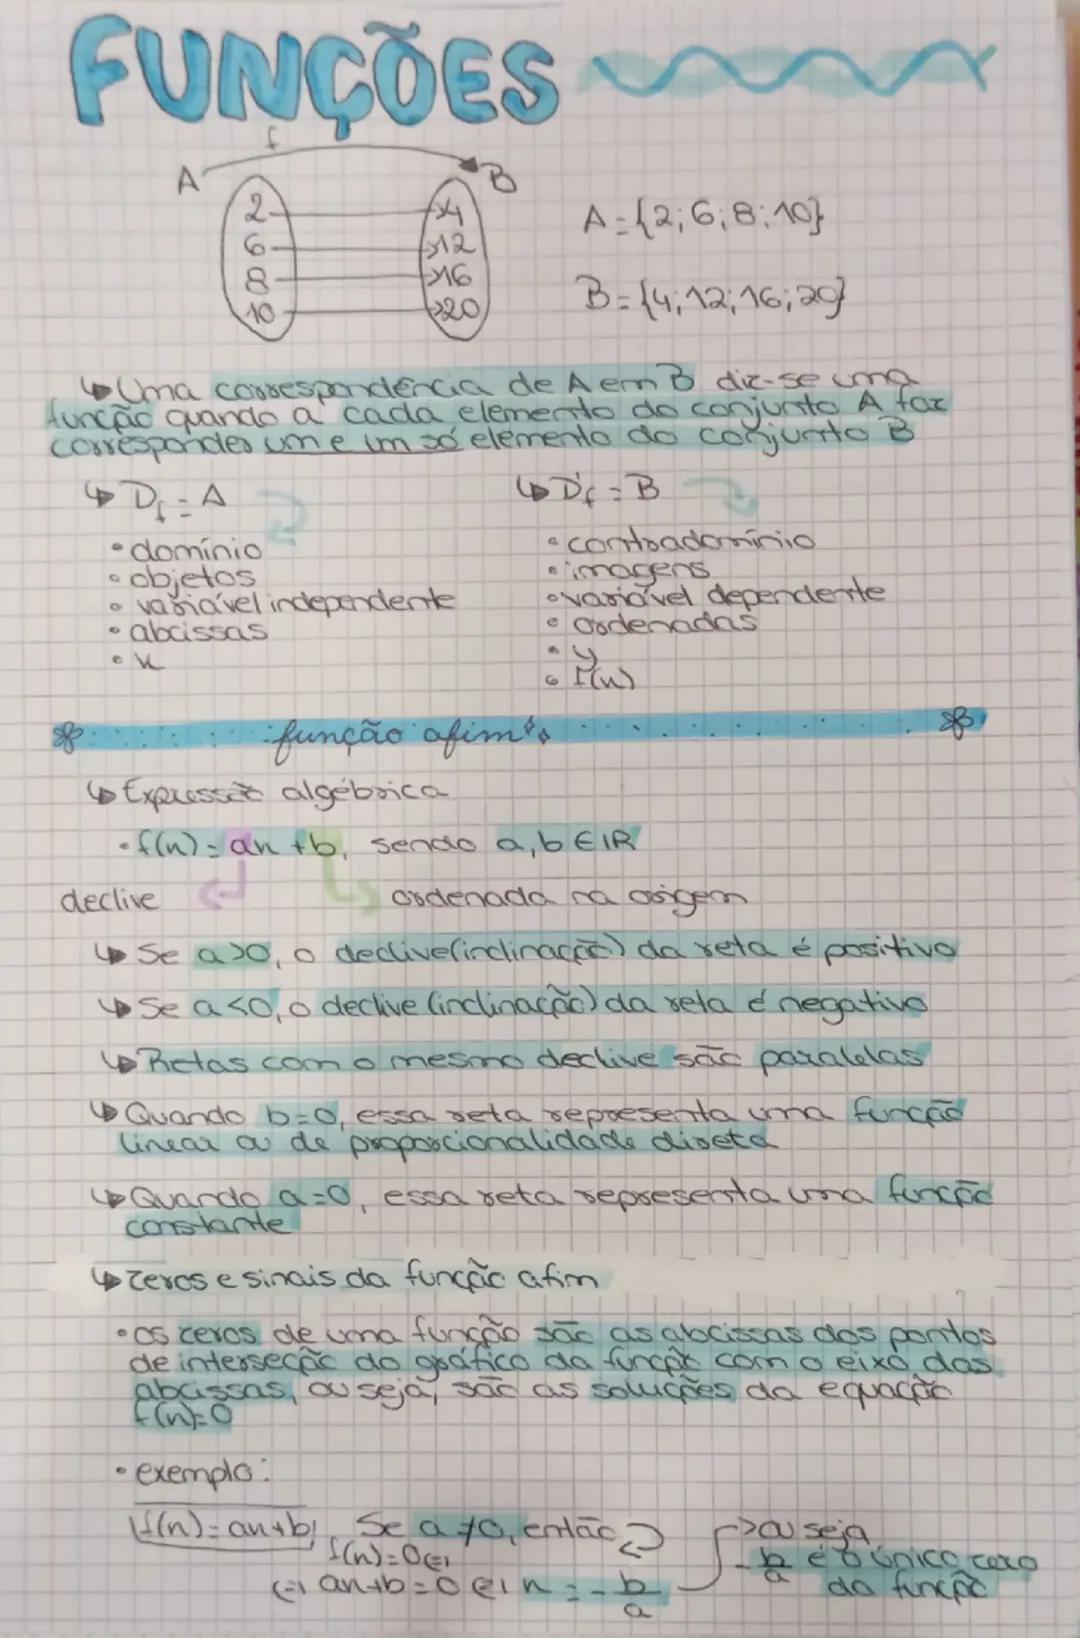 FUNÇÕES
f
A B
2 4
6 12
8 16
10 20
A={2;6;8;10}
B={4;12;16;20}
Uma correspondência de A em B diz-se uma
função quando a cada elemento do conjunto A faz
corresponder um e um só elemento do conjunto B
Df = A
• domínio
• objetos
• variável independente
• abcissas
• x
D'f = B
• contradomínio
• imagens
• variável dependente
• ordenadas
• y
• f(x)
função afim
Expressão algébrica
• f(x) = ax + b, sendo a, b ∈ IR
declive ordenada na origem
Se a>0, o declive (inclinação) da reta é positivo
Se a<0, o declive (inclinação) da reta é negativo
Retas com o mesmo declive são paralelas
Quando b=0, essa reta representa uma função
linear ou de proporcionalidade direta
Quando a=0, essa reta representa uma função
constante
Zeros e sinais da função afim
• os zeros de uma função são as abcissas dos pontos
de interseção do gráfico da função com o eixo das
abcissas, ou seja, são as soluções da equação
f(x)=0
• exemplo:
f(x) = ax+b, Se a ≠ 0, então
f(x)=0 (=)
(=) ax+b=0 (=) x = -b/a
-> ou seja
-b/a é o único zero
da função